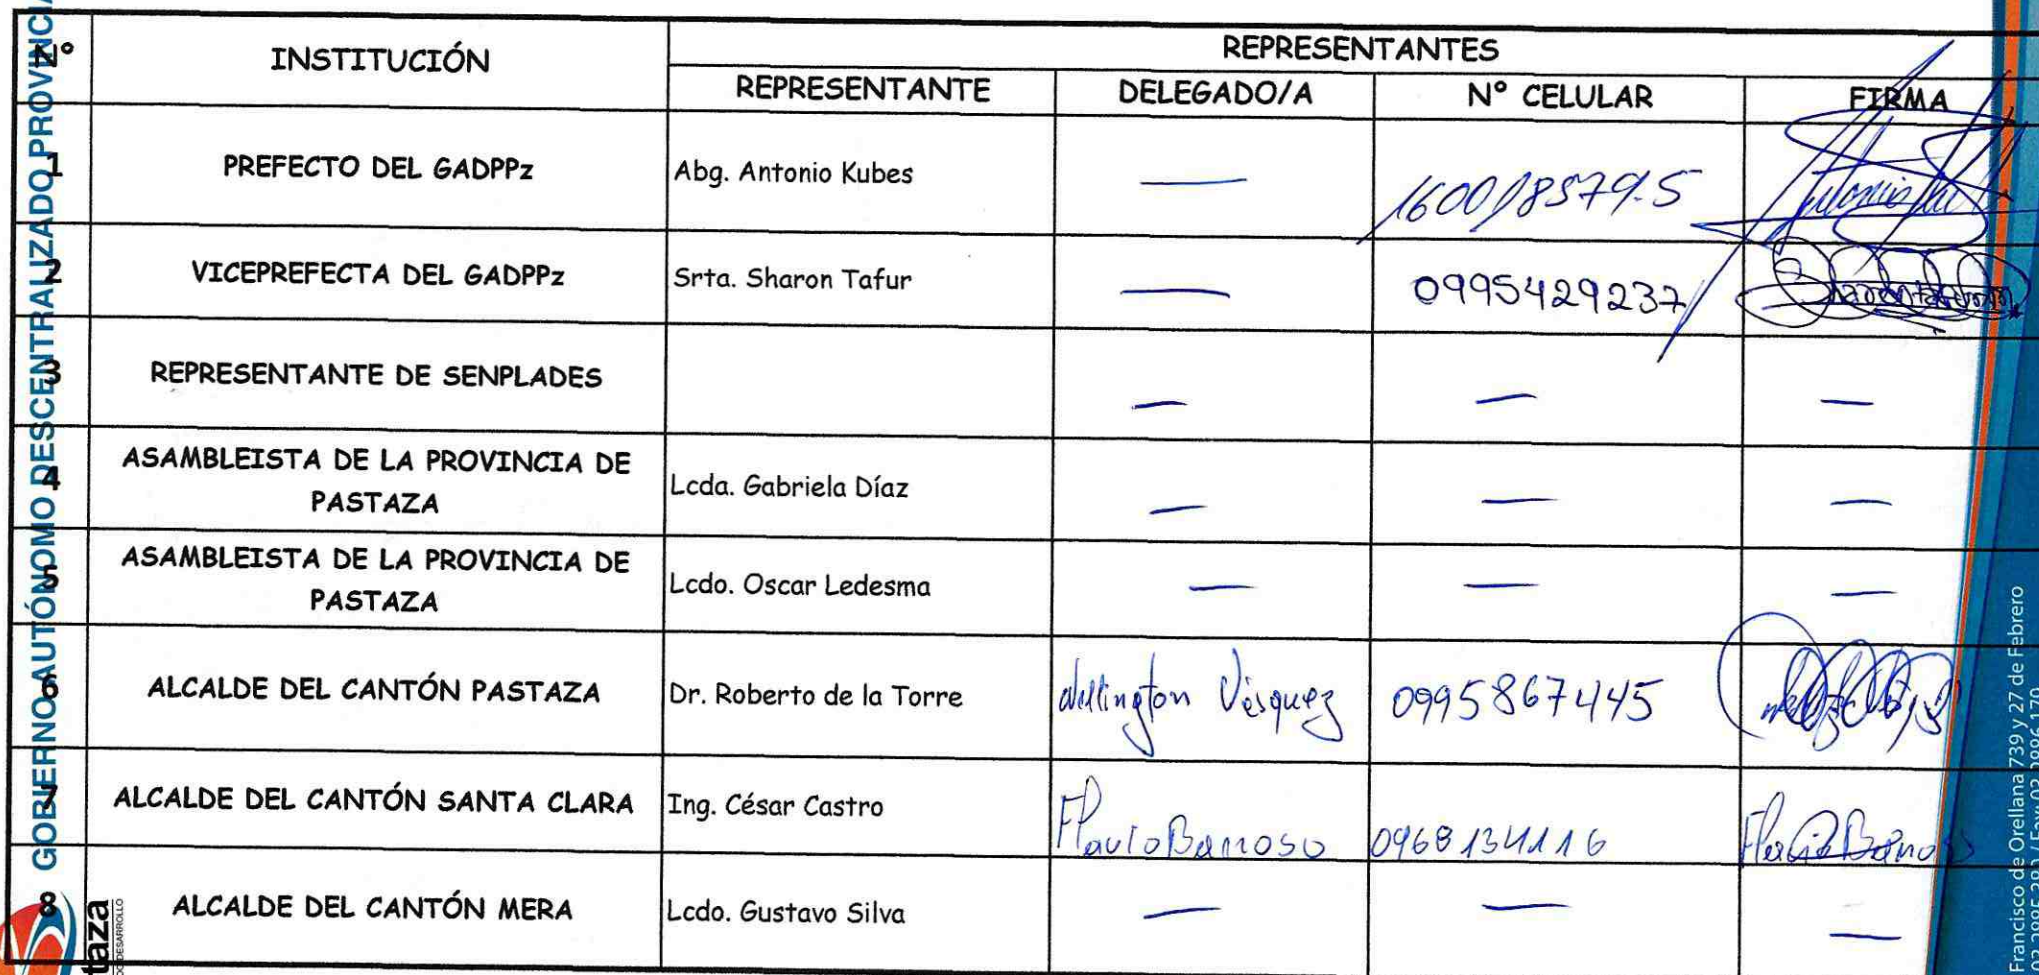 GOBIERNO AUTÓNOMO DESCENTRALIZADO PROVINCIA
N° INSTITUCIÓN REPRESENTANTES
REPRESENTANTE DELEGADO/A N° CELULAR FIRMA
1 PREFECTO DEL GADPPz Abg. Antonio Kubes — 160018579-5
2 VICEPREFECTA DEL GADPPz Srta. Sharon Tafur — 0995429237
3 REPRESENTANTE DE SENPLADES — — —
4 ASAMBLEISTA DE LA PROVINCIA DE
PASTAZA Lcda. Gabriela Díaz — — —
5 ASAMBLEISTA DE LA PROVINCIA DE
PASTAZA Lcdo. Oscar Ledesma — — —
6 ALCALDE DEL CANTÓN PASTAZA Dr. Roberto de la Torre Wellington Vásquez 0995867445
7 ALCALDE DEL CANTÓN SANTA CLARA Ing. César Castro Flavio Barroso 0968134116
8 ALCALDE DEL CANTÓN MERA Lcdo. Gustavo Silva — — —
taza
DESARROLLO
Francisco de Orellana 739 y 27 de Febrero